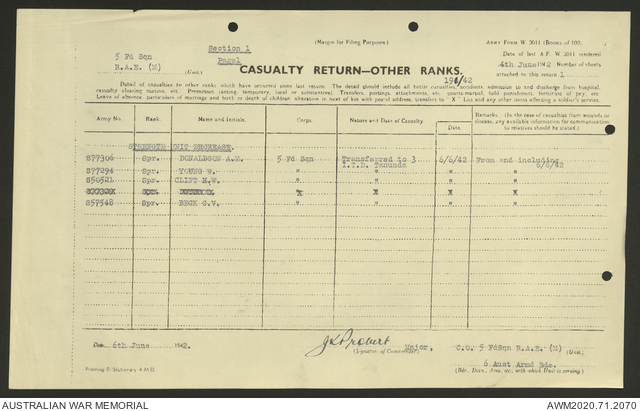 5 Fd Sqn
R.A.E. (M) (Unit.)
Section 1
Page1
(Margin for Filing Purposes.)
ARMY FORM W. 3011 (Books of 100)
Date of last A.F. W. 3011 rendered
4th June 1942 Number of sheets
attached to this return 1
CASUALTY RETURN—OTHER RANKS.
196/42
Detail of casualties to other ranks which have occurred since last return. The detail should include all battle casualties, accidents, admission to and discharge from hospital,
casualty clearing station, etc. Promotion (acting, temporary, local or substantive). Transfers, postings, attachments, etc., courts-martial, field punishment, forfeiture of pay, etc.
Leave of absence, particulars of marriage and birth or death of children, alteration in next of kin with postal address, transfers to "X" List and any other items affecting a soldier's service.
Army No. Rank. Name and Initials. Corps. Nature and Date of Casualty Date Remarks. (In the case of casualties from wounds or
disease, any available information for communication
to relatives should be stated.)
STRENGTH UNIT DECREASE.
S77306 Spr. DONALDSON A.M. 5 Fd Sqn Transferred to 3 6/6/42 From and including
I.T.B. Tanunda 6/6/42
S77294 Spr. YOUNG W. " " " "
S50521 Spr. CLIFT H.W. " " " "
S57548 Spr. BECK C.V. " " " "
Date 6th June 1942.
J K Probert Major, C.O. 5 FdSqn R.A.E. (M) (Unit)
(Signature of Commander)
6 Aust Armd Bde.
(Bde., Divn., Area, etc., with which Unit is serving.)
Printing & Stationery 4 M.D.
AUSTRALIAN WAR MEMORIAL
AWM2020.71.2070